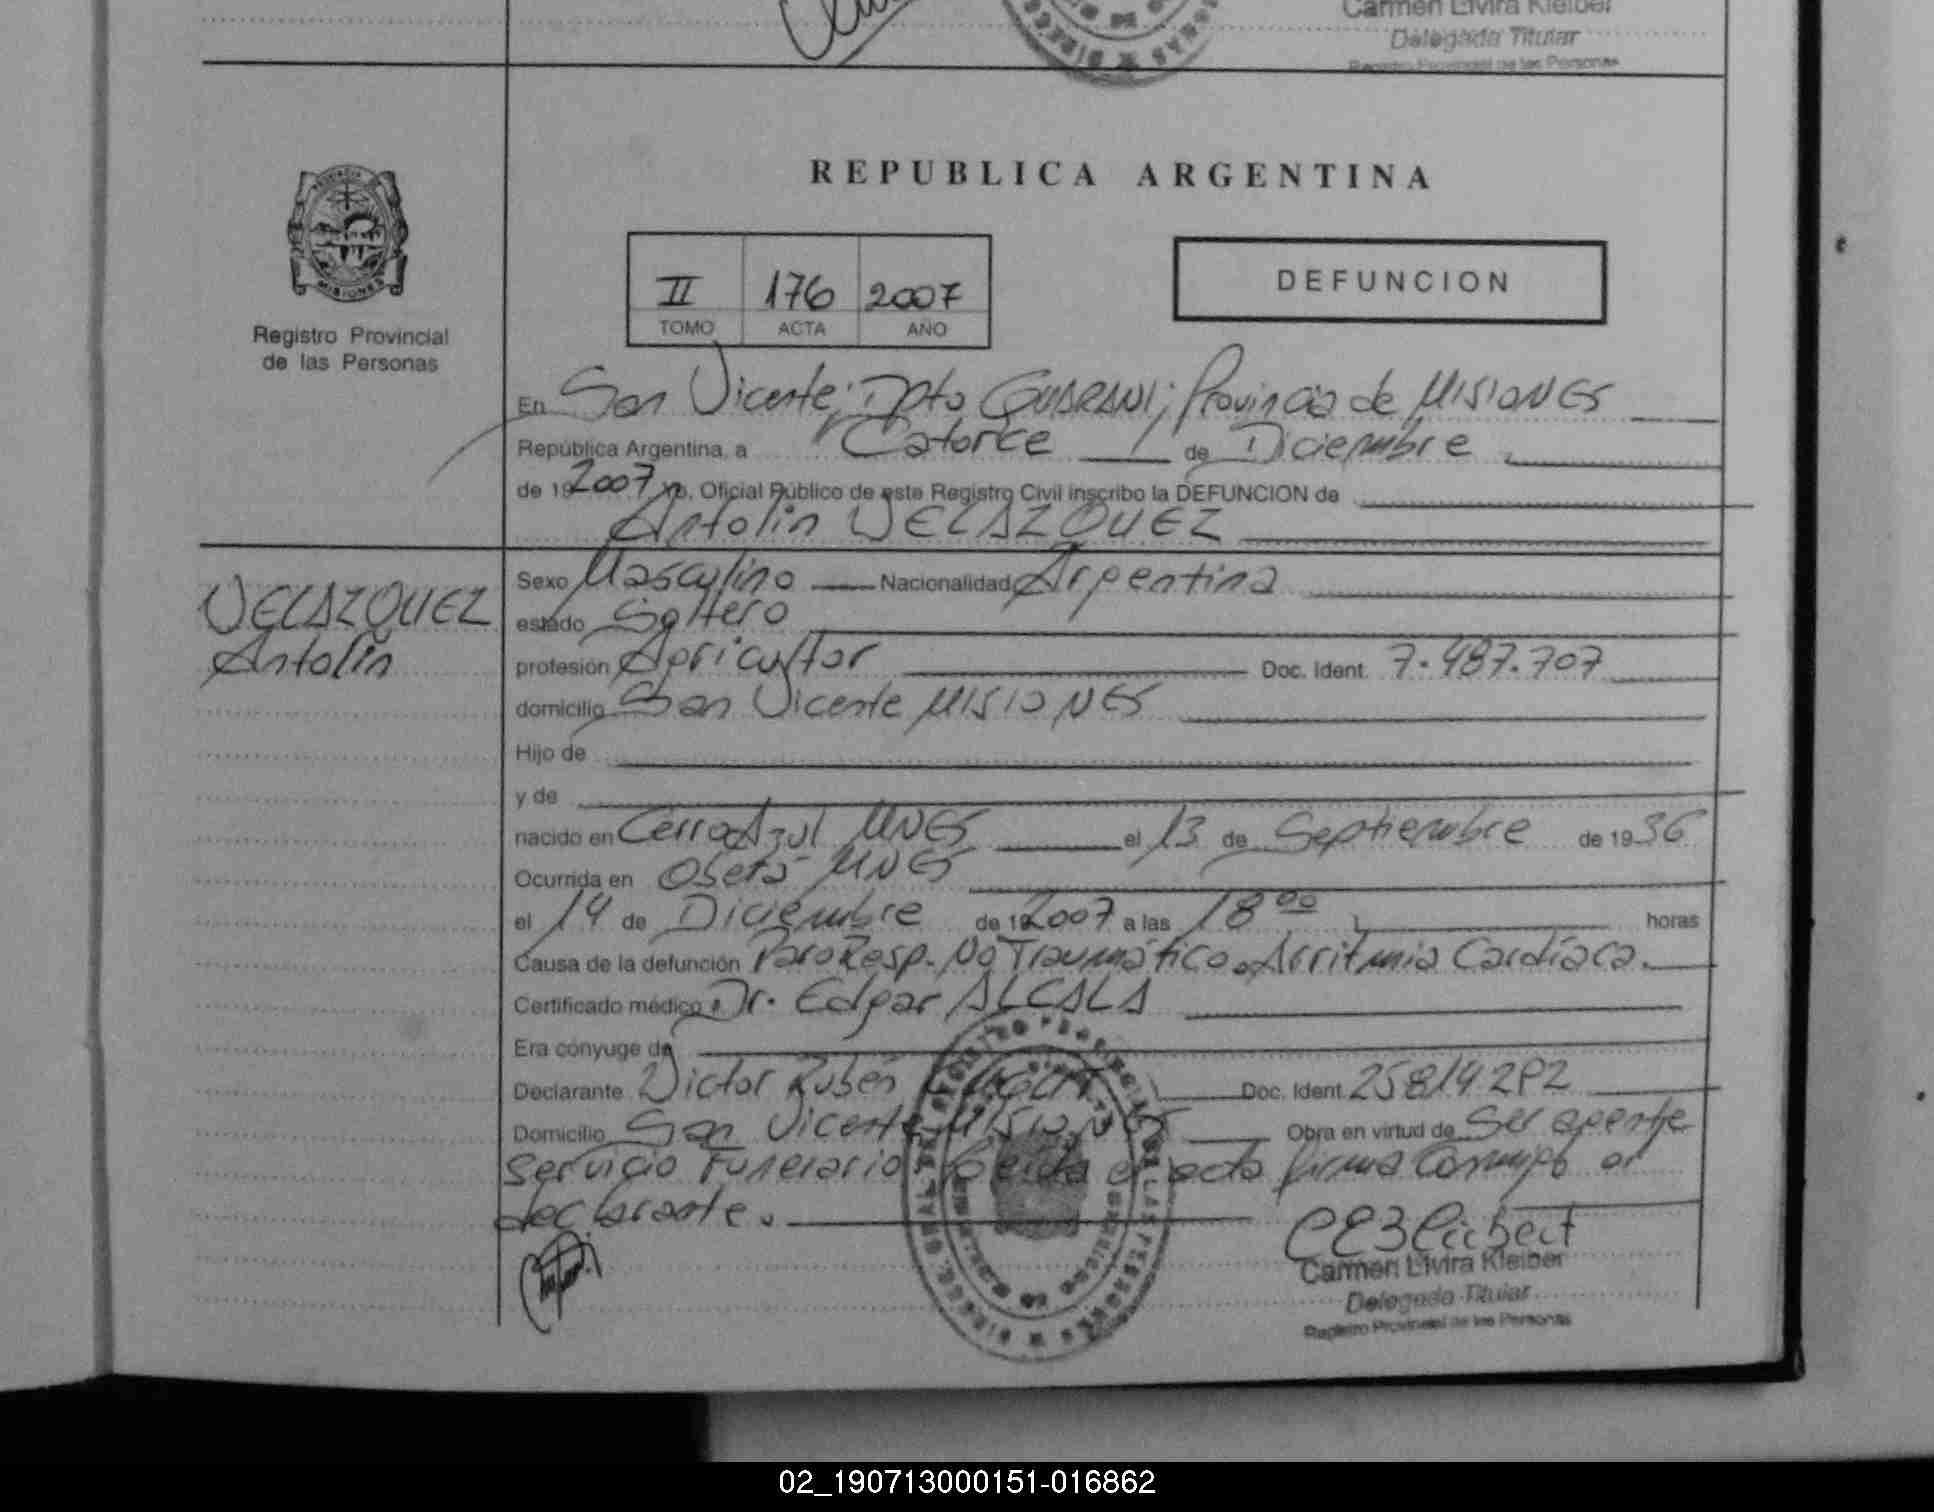 Carmen Elvira Kleiber
Delegada Titular
Registro Provincial de las Personas
PROVINCIA
MISIONES
Registro Provincial
de las Personas
REPUBLICA ARGENTINA
II 176 2007
TOMO ACTA AÑO
DEFUNCION
En San Vicente; Dpto GUARANI; Provincia de MISIONES
República Argentina, a Catorce de Diciembre
de 19 2007 Yo, Oficial Público de este Registro Civil inscribo la DEFUNCION de
Antolin VELAZQUEZ
VELAZQUEZ
Antolin
Sexo Masculino Nacionalidad Argentina
estado Soltero
profesión Agricultor Doc. Ident. 7.487.707
domicilio San Vicente MISIONES
Hijo de
y de
nacido en Cerro Azul MNES el 13 de Septiembre de 1936
Ocurrida en Oberá MNES
el 14 de Diciembre de 19 2007 a las 18 00 horas
Causa de la defunción Paro Resp. No Traumático. Arritmia Cardíaca.
Certificado médico Dr. Edgar ALCALA
Era cónyuge de
Declarante Victor Rubén Doc. Ident.
Domicilio San Vicente MISIONES Obra en virtud de Ser agente
Servicio Funerario el acta firma Conmigo el
declarante.
Carmen Elvira Kleiber
Delegada Titular
Registro Provincial de las Personas
02_190713000151-016862